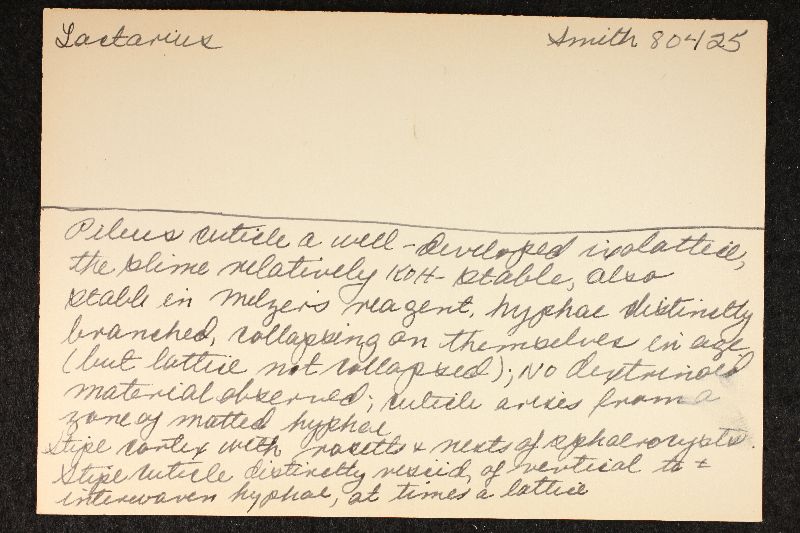 Lactarius
Smith 80425
Pileus cuticle a well-developed ixolattice,
the slime relatively KOH-stable, also
stable in Melzer's reagent, hyphae distinctly
branched, collapsing on themselves in age
(but lattice not collapsed); No dextrinoid
material observed; cuticle arises from a
zone of matted hyphae
Stipe cortex with rosetts & nests of sphaerocysts.
Stipe cuticle distinctly viscid, of vertical to ±
interwoven hyphae, at times a lattice